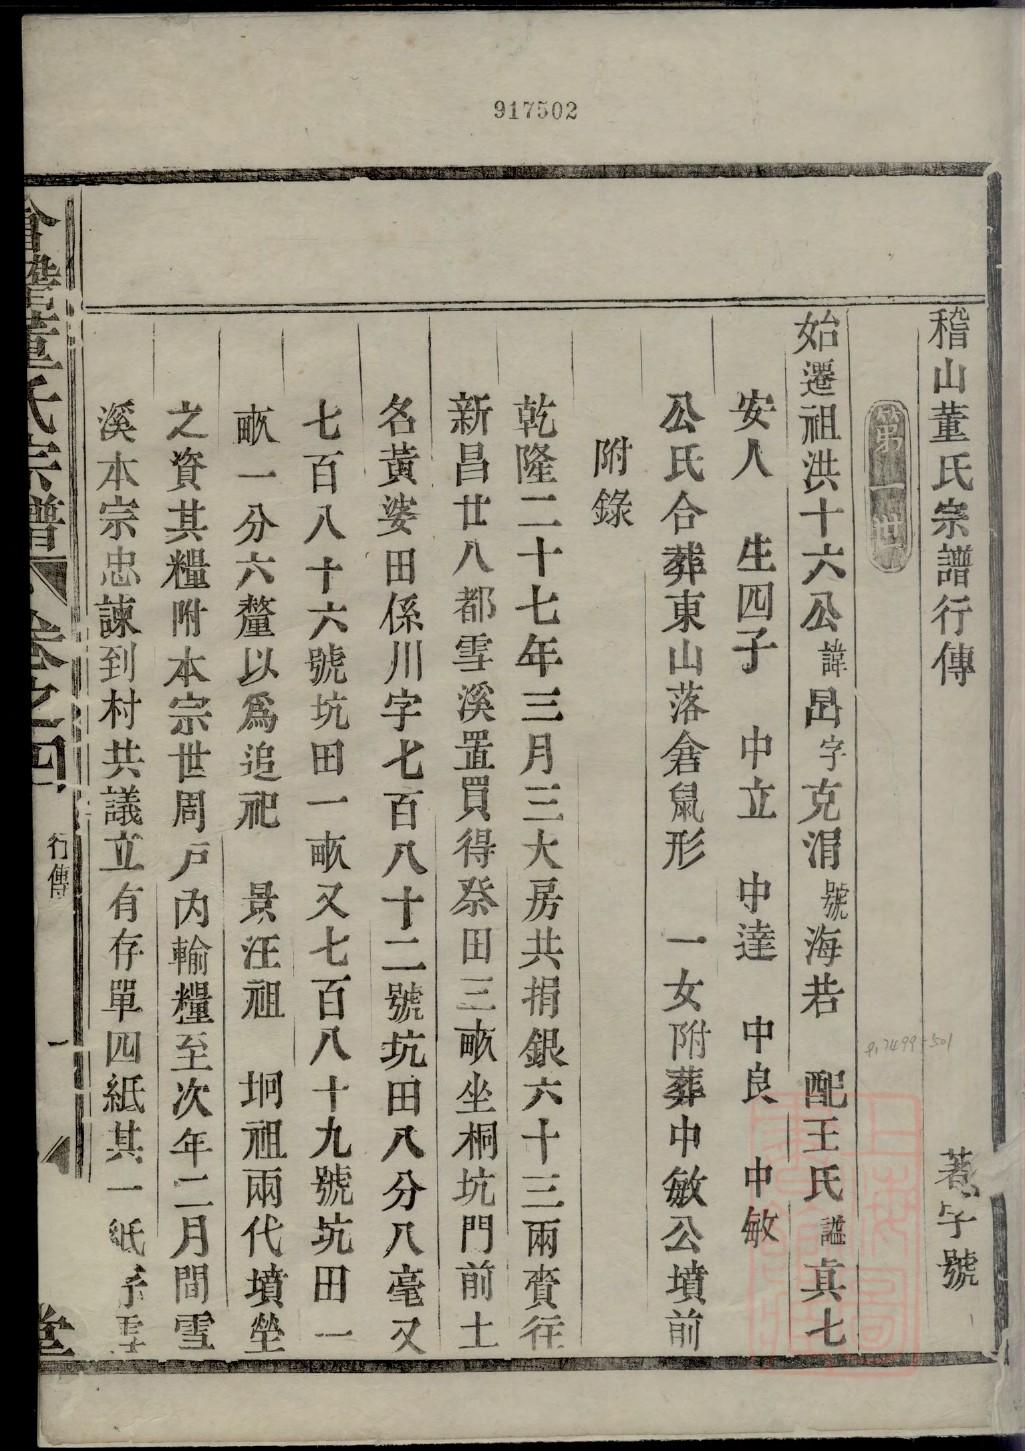 917502
稽山董氏宗譜行傳
著字號
第一世
始遷祖洪十六公諱昷字克涓號海若　配王氏諡真七
安人　生四子　中立　中達　中良　中敏
公氏合葬東山落倉鼠形　一女附葬中敏公墳前
附錄
乾隆二十七年三月三大房共捐銀六十三兩賫往
新昌廿八都雪溪置買得祭田三畝坐桐坑門前土
名黃婆田係川字七百八十二號坑田八分八毫又
七百八十六號坑田一畝又七百八十九號坑田一
畝一分六釐以爲追祀　景汪祖　坰祖兩代墳塋
之資其糧附本宗世周戶內輸糧至次年二月間雪
溪本宗忠諫到村共議立有存單四紙其一紙系雪
會稽董氏宗譜　卷之四　行傳　一　堂